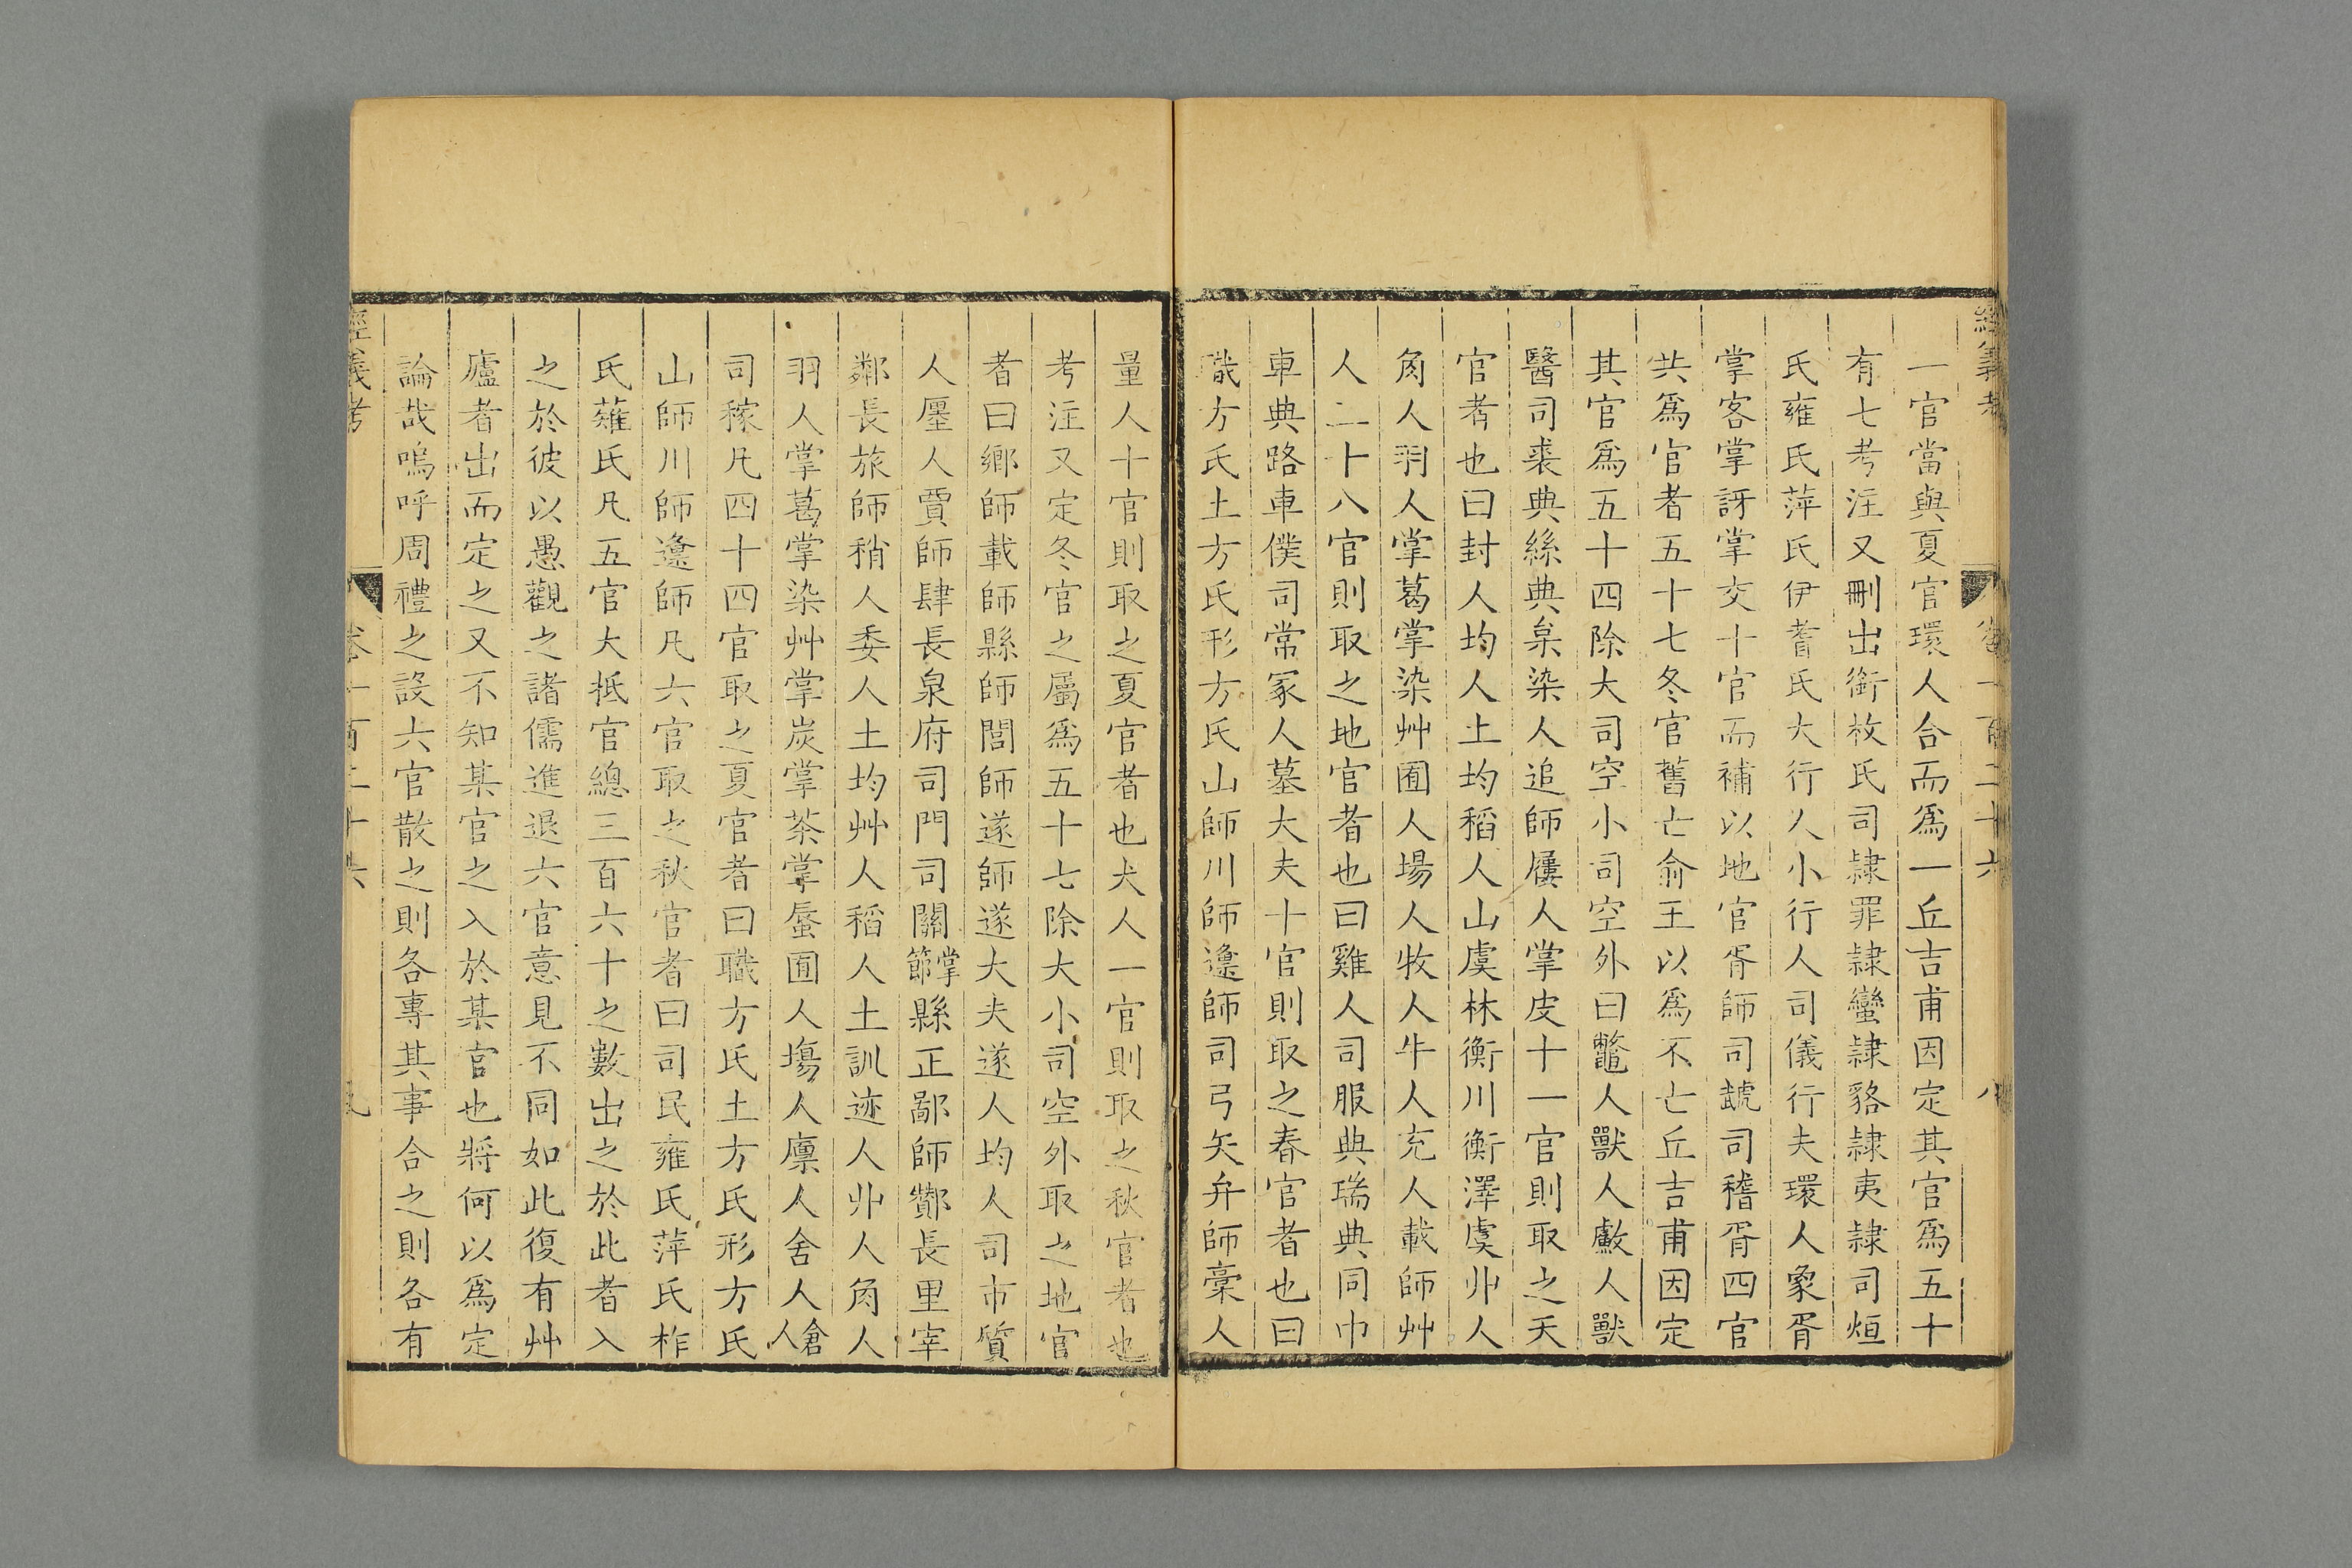 經義考 卷一百二十六 八
一官當與夏官環人合而爲一丘吉甫因定其官爲五十
有七考注又刪出銜枚氏司隸罪隸蠻隸貉隸夷隸司烜
氏雍氏萍氏伊耆氏大行人小行人司儀行夫環人象胥
掌客掌訝掌交十官而補以地官胥師司虣司稽胥四官
共爲官者五十七冬官舊亡俞王以爲不亡丘吉甫因定
其官爲五十四除大司空小司空外曰鼈人獸人䱷人獸
醫司裘典絲典枲染人追師屨人掌皮十一官則取之天
官者也曰封人均人土均稻人山虞林衡川衡澤虞丱人
角人羽人掌葛掌染艸囿人場人牧人牛人充人載師艸
人二十八官則取之地官者也曰雞人司服典瑞典同巾
車典路車僕司常冢人墓大夫十官則取之春官者也曰
職方氏土方氏形方氏山師川師邍師司弓矢弁師稾人
量人十官則取之夏官者也犬人一官則取之秋官者也
考注又定冬官之屬爲五十七除大小司空外取之地官
者曰鄉師載師縣師閭師遂師遂大夫遂人均人司市質
人廛人賈師肆長泉府司門司關掌節縣正鄙師酇長里宰
鄰長旅師稍人委人土均艸人稻人土訓迹人丱人角人
羽人掌葛掌染艸掌炭掌茶掌蜃囿人塲人廪人舍人倉人
司稼凡四十四官取之夏官者曰職方氏土方氏形方氏
山師川師邍師凡六官取之秋官者曰司民雍氏萍氏柞
氏薙氏凡五官大抵官總三百六十之數出之於此者入
之於彼以愚觀之諸儒進退六官意見不同如此復有艸
廬者出而定之又不知某官之入於某官也將何以爲定
論哉嗚呼周禮之設六官散之則各專其事合之則各有
經義考 卷一百二十六 九